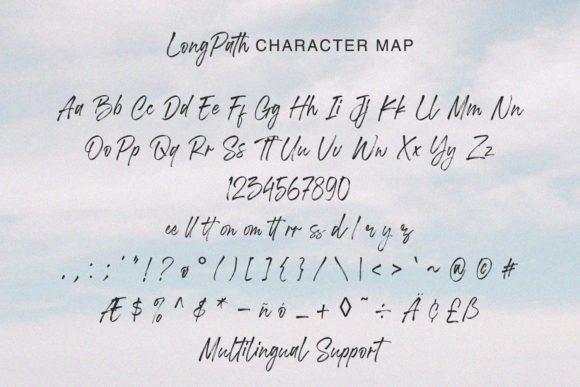 LongPath CHARACTER MAP
Aa Bb Cc Dd Ee Ff Gg Hh Ii Jj Kk Ll Mm Nn
Oo Pp Qq Rr Ss Tt Uu Vv Ww Xx Yy Zz
1234567890
ee ll tt on om tt rr ss d l r y z
. , : ; ' " ! ? ( ) [ ] { } / \ | < > ` ~ @ © #
Æ $ % ^ $ * – ñ ó _ + ◊ ˜ ÷ Ä ¢ £ ß
Multilingual Support